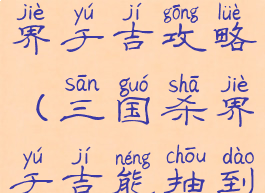 jiè yú jí gōng lüè
界于吉攻略
sān guó shā jiè
（三国杀界
yú jí néng chōu dào
于吉能抽到